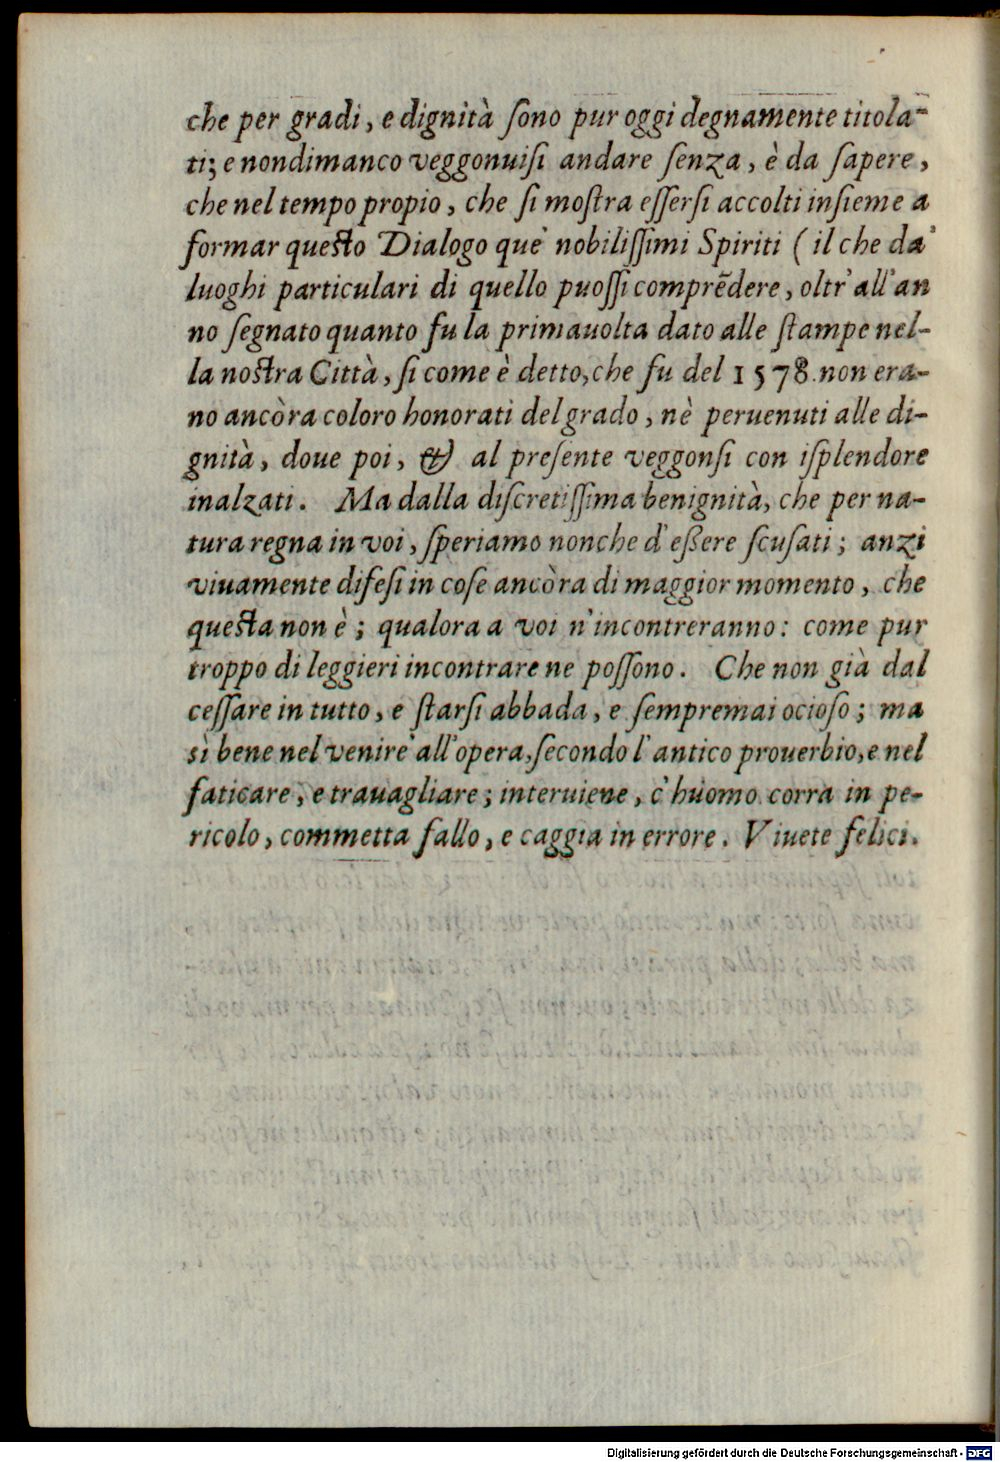 che per gradi, e dignità ſono pur oggi degnamente titola-
ti; e nondimanco veggonuiſi andare ſenza, è da ſapere,
che nel tempo propio, che ſi moſtra eſſerſi accolti inſieme a
formar queſto Dialogo que' nobiliſſimi Spiriti (il che da'
luoghi particulari di quello puoſſi comprēdere, oltr'all'an
no ſegnato quanto fu la prima uolta dato alle ſtampe nel-
la noſtra Città, ſi come è detto, che fu del 1578. non era-
no ancòra coloro honorati del grado, nè peruenuti alle di-
gnità, doue poi, & al preſente veggonſi con iſplendore
inalzati. Ma dalla diſcretiſſima benignità, che per na-
tura regna in voi, ſperiamo nonche d'eßere ſcuſati; anzi
viuamente difeſi in coſe ancòra di maggior momento, che
queſta non è; qualora a voi n'incontreranno: come pur
troppo di leggieri incontrare ne poſſono. Che non già dal
ceſſare in tutto, e ſtarſi abbada, e ſempremai ocioſo; ma
sì bene nel venire all'opera, ſecondo l'antico prouerbio, e nel
faticare, e trauagliare; interuiene, c'huomo corra in pe-
ricolo, commetta fallo, e caggia in errore. Viuete felici.
Digitalisierung gefördert durch die Deutsche Forschungsgemeinschaft - DFG